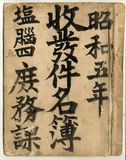 昭和五年
收發件名簿
塩腦四庶務課